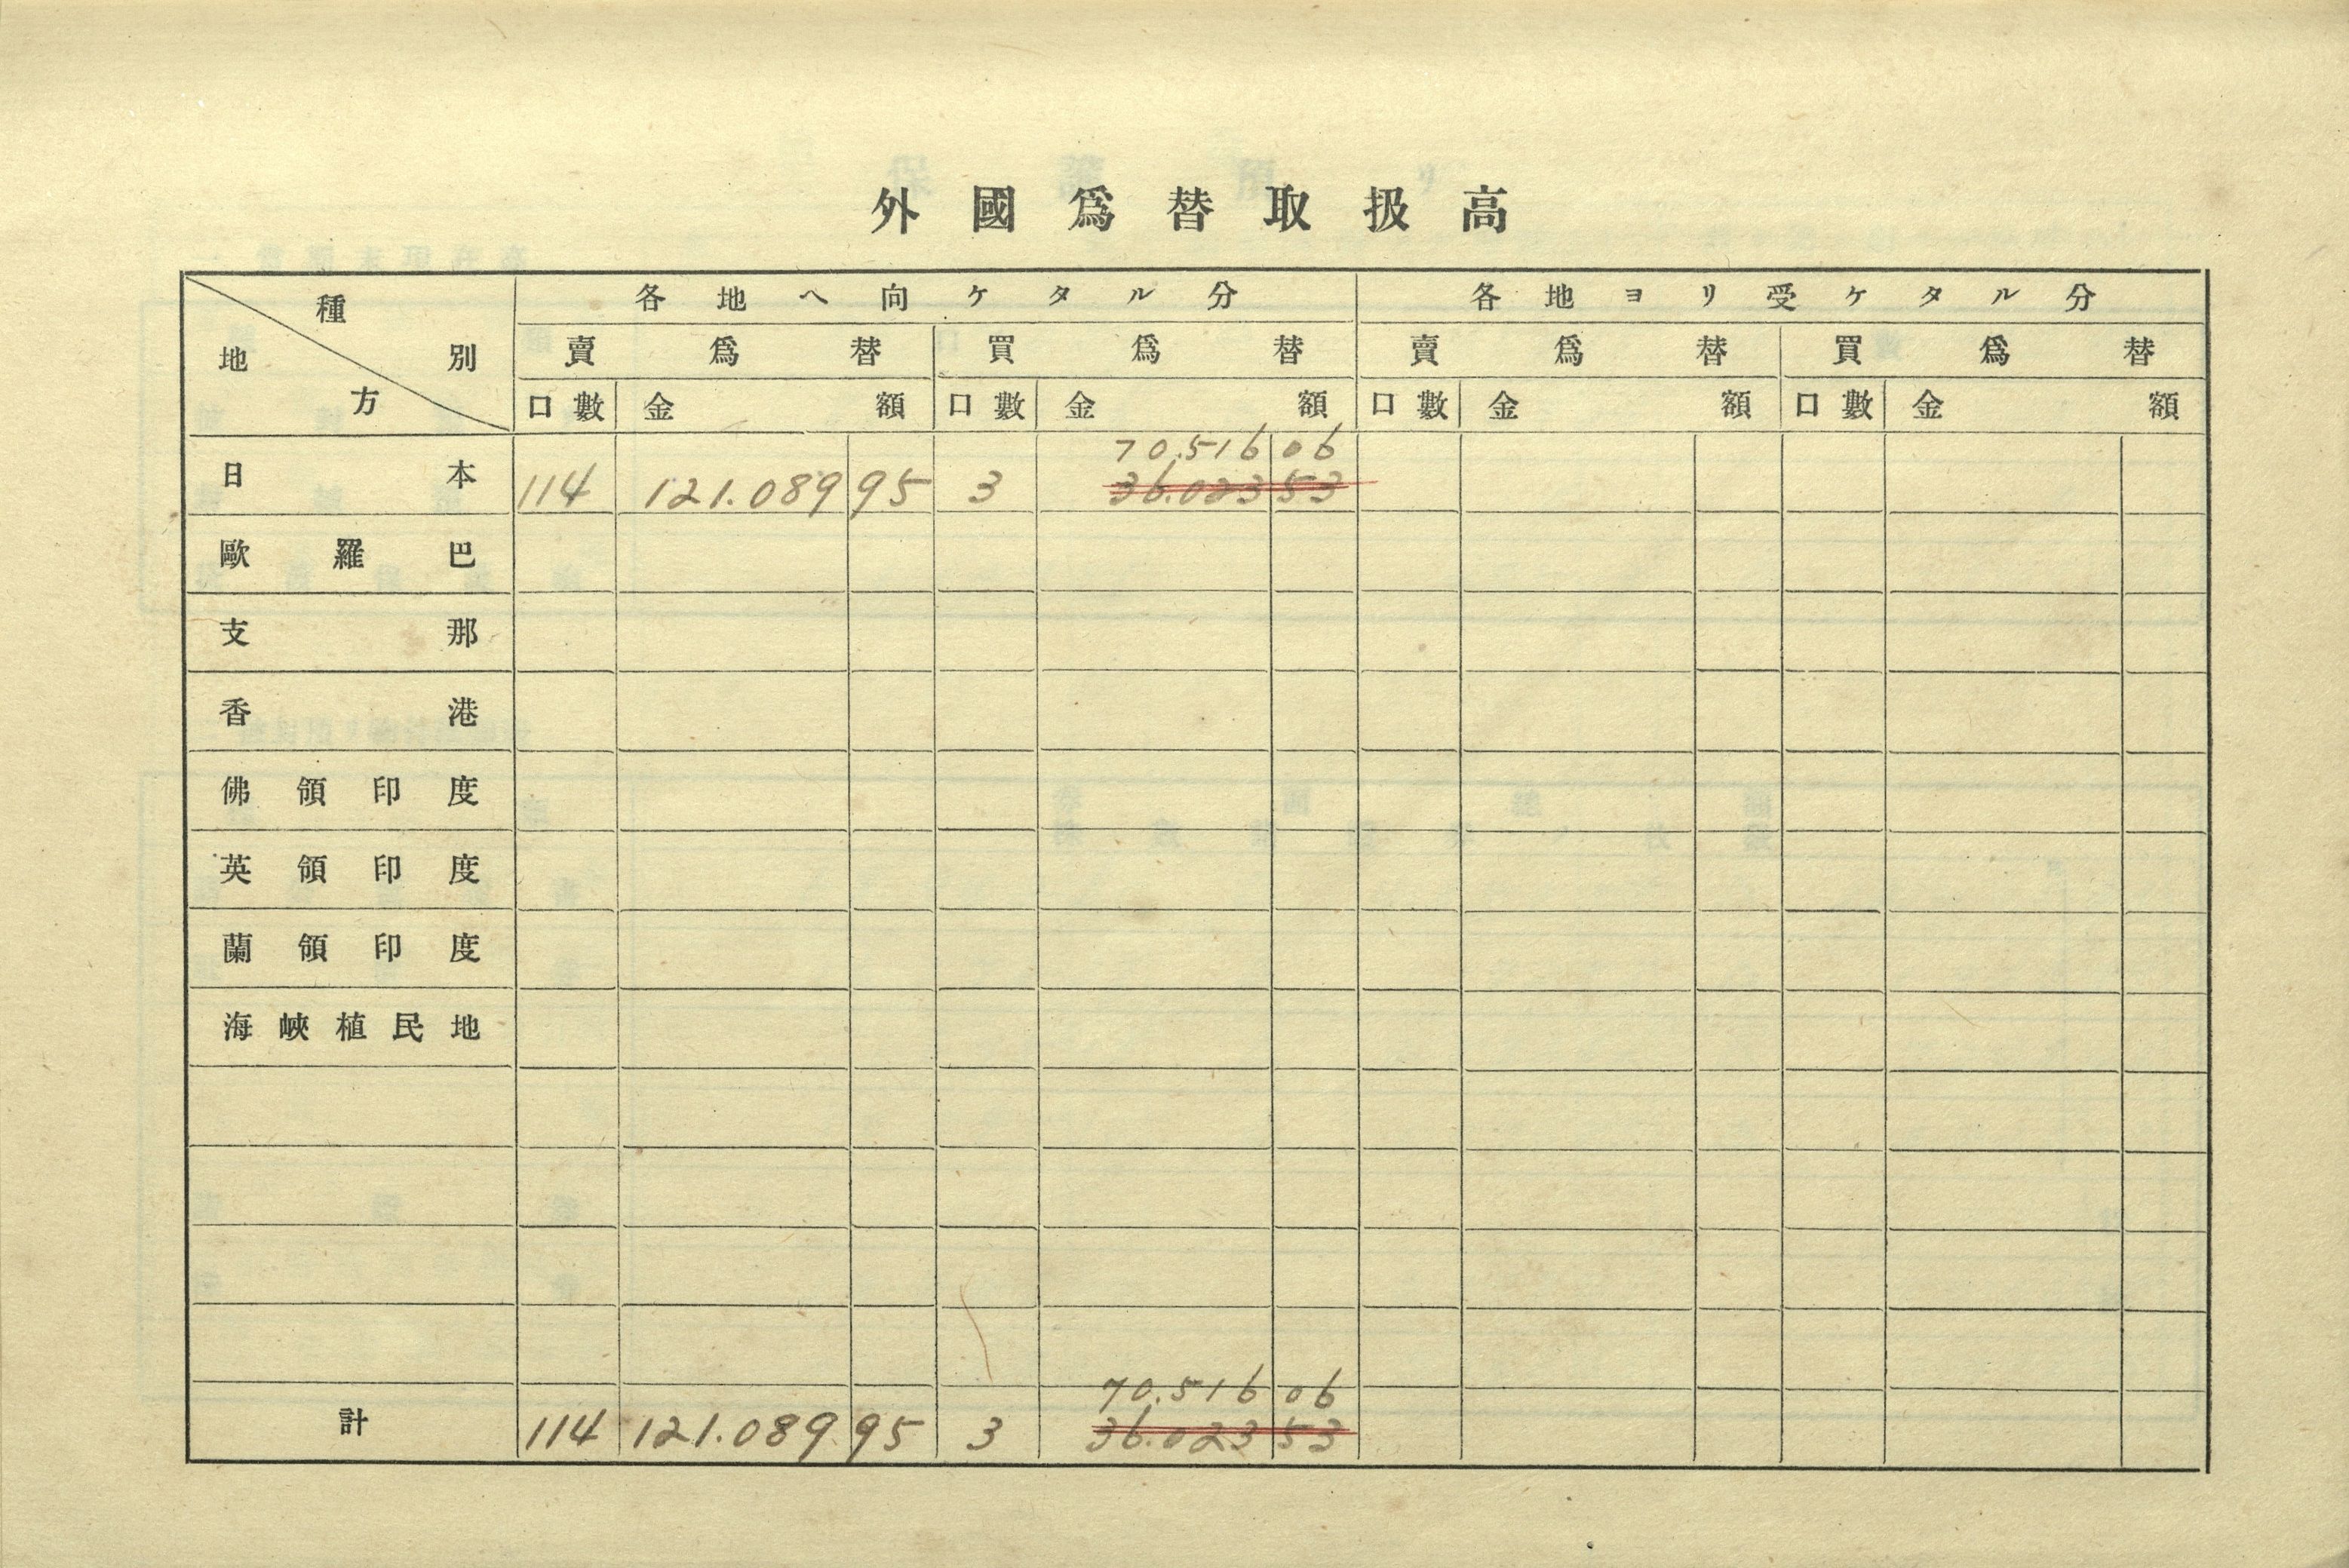 外國爲替取扱高
種別 地方 各地ヘ向ケタル分 各地ヨリ受ケタル分
賣爲替 買爲替 賣爲替 買爲替
口數 金額 口數 金額 口數 金額 口數 金額
70.516 06
日本 114 121.089 95 3 36.023 53
歐羅巴
支那
香港
佛領印度
英領印度
蘭領印度
海峽植民地
70.516 06
計 114 121.089 95 3 36.023 53